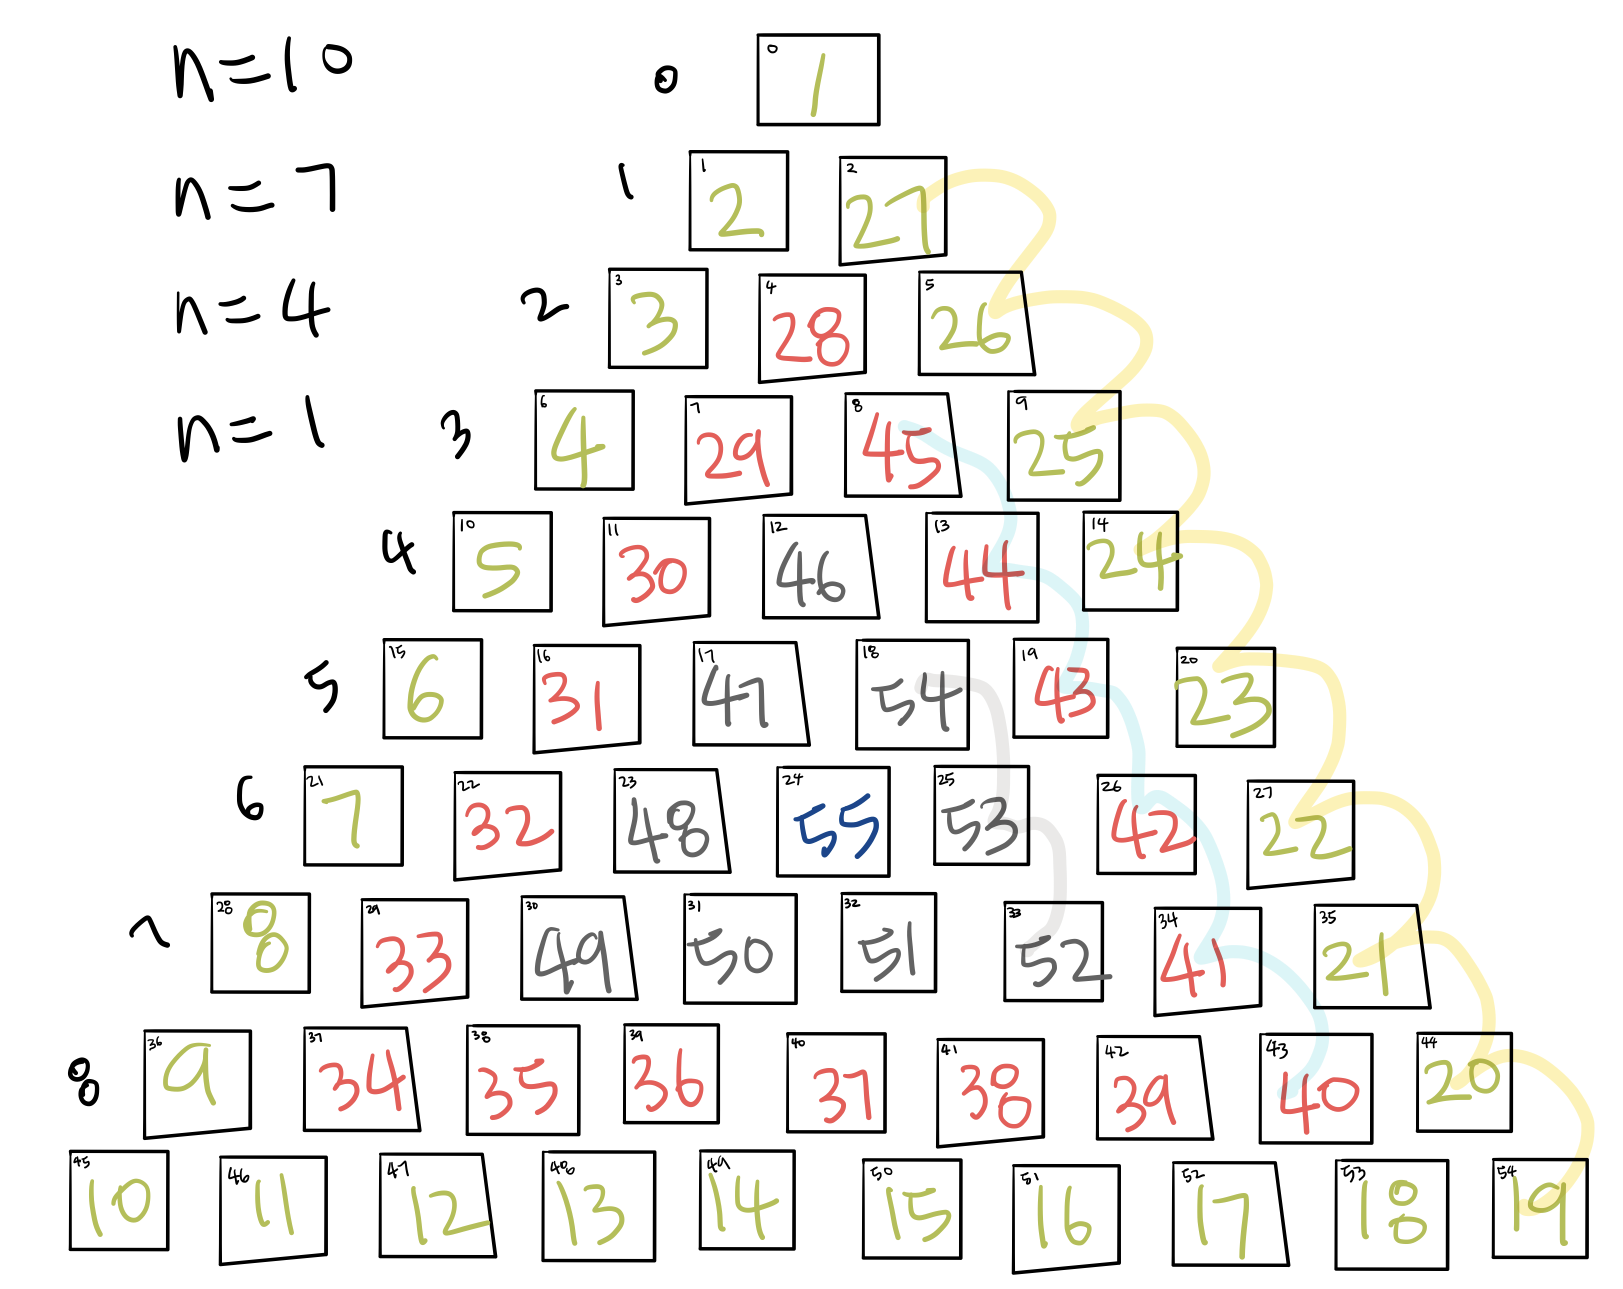 n=10
n=7
n=4
n=1
0 0 1
1 1 2 2 27
2 3 3 4 28 5 26
3 6 4 7 29 8 45 9 25
4 10 5 11 30 12 46 13 44 14 24
5 15 6 16 31 17 47 18 54 19 43 20 23
6 21 7 22 32 23 48 24 55 25 53 26 42 27 22
7 28 8 29 33 30 49 31 50 32 51 33 52 34 41 35 21
8 36 9 37 34 38 35 39 36 40 37 41 38 42 39 43 40 44 20
45 10 46 11 47 12 48 13 49 14 50 15 51 16 52 17 53 18 54 19